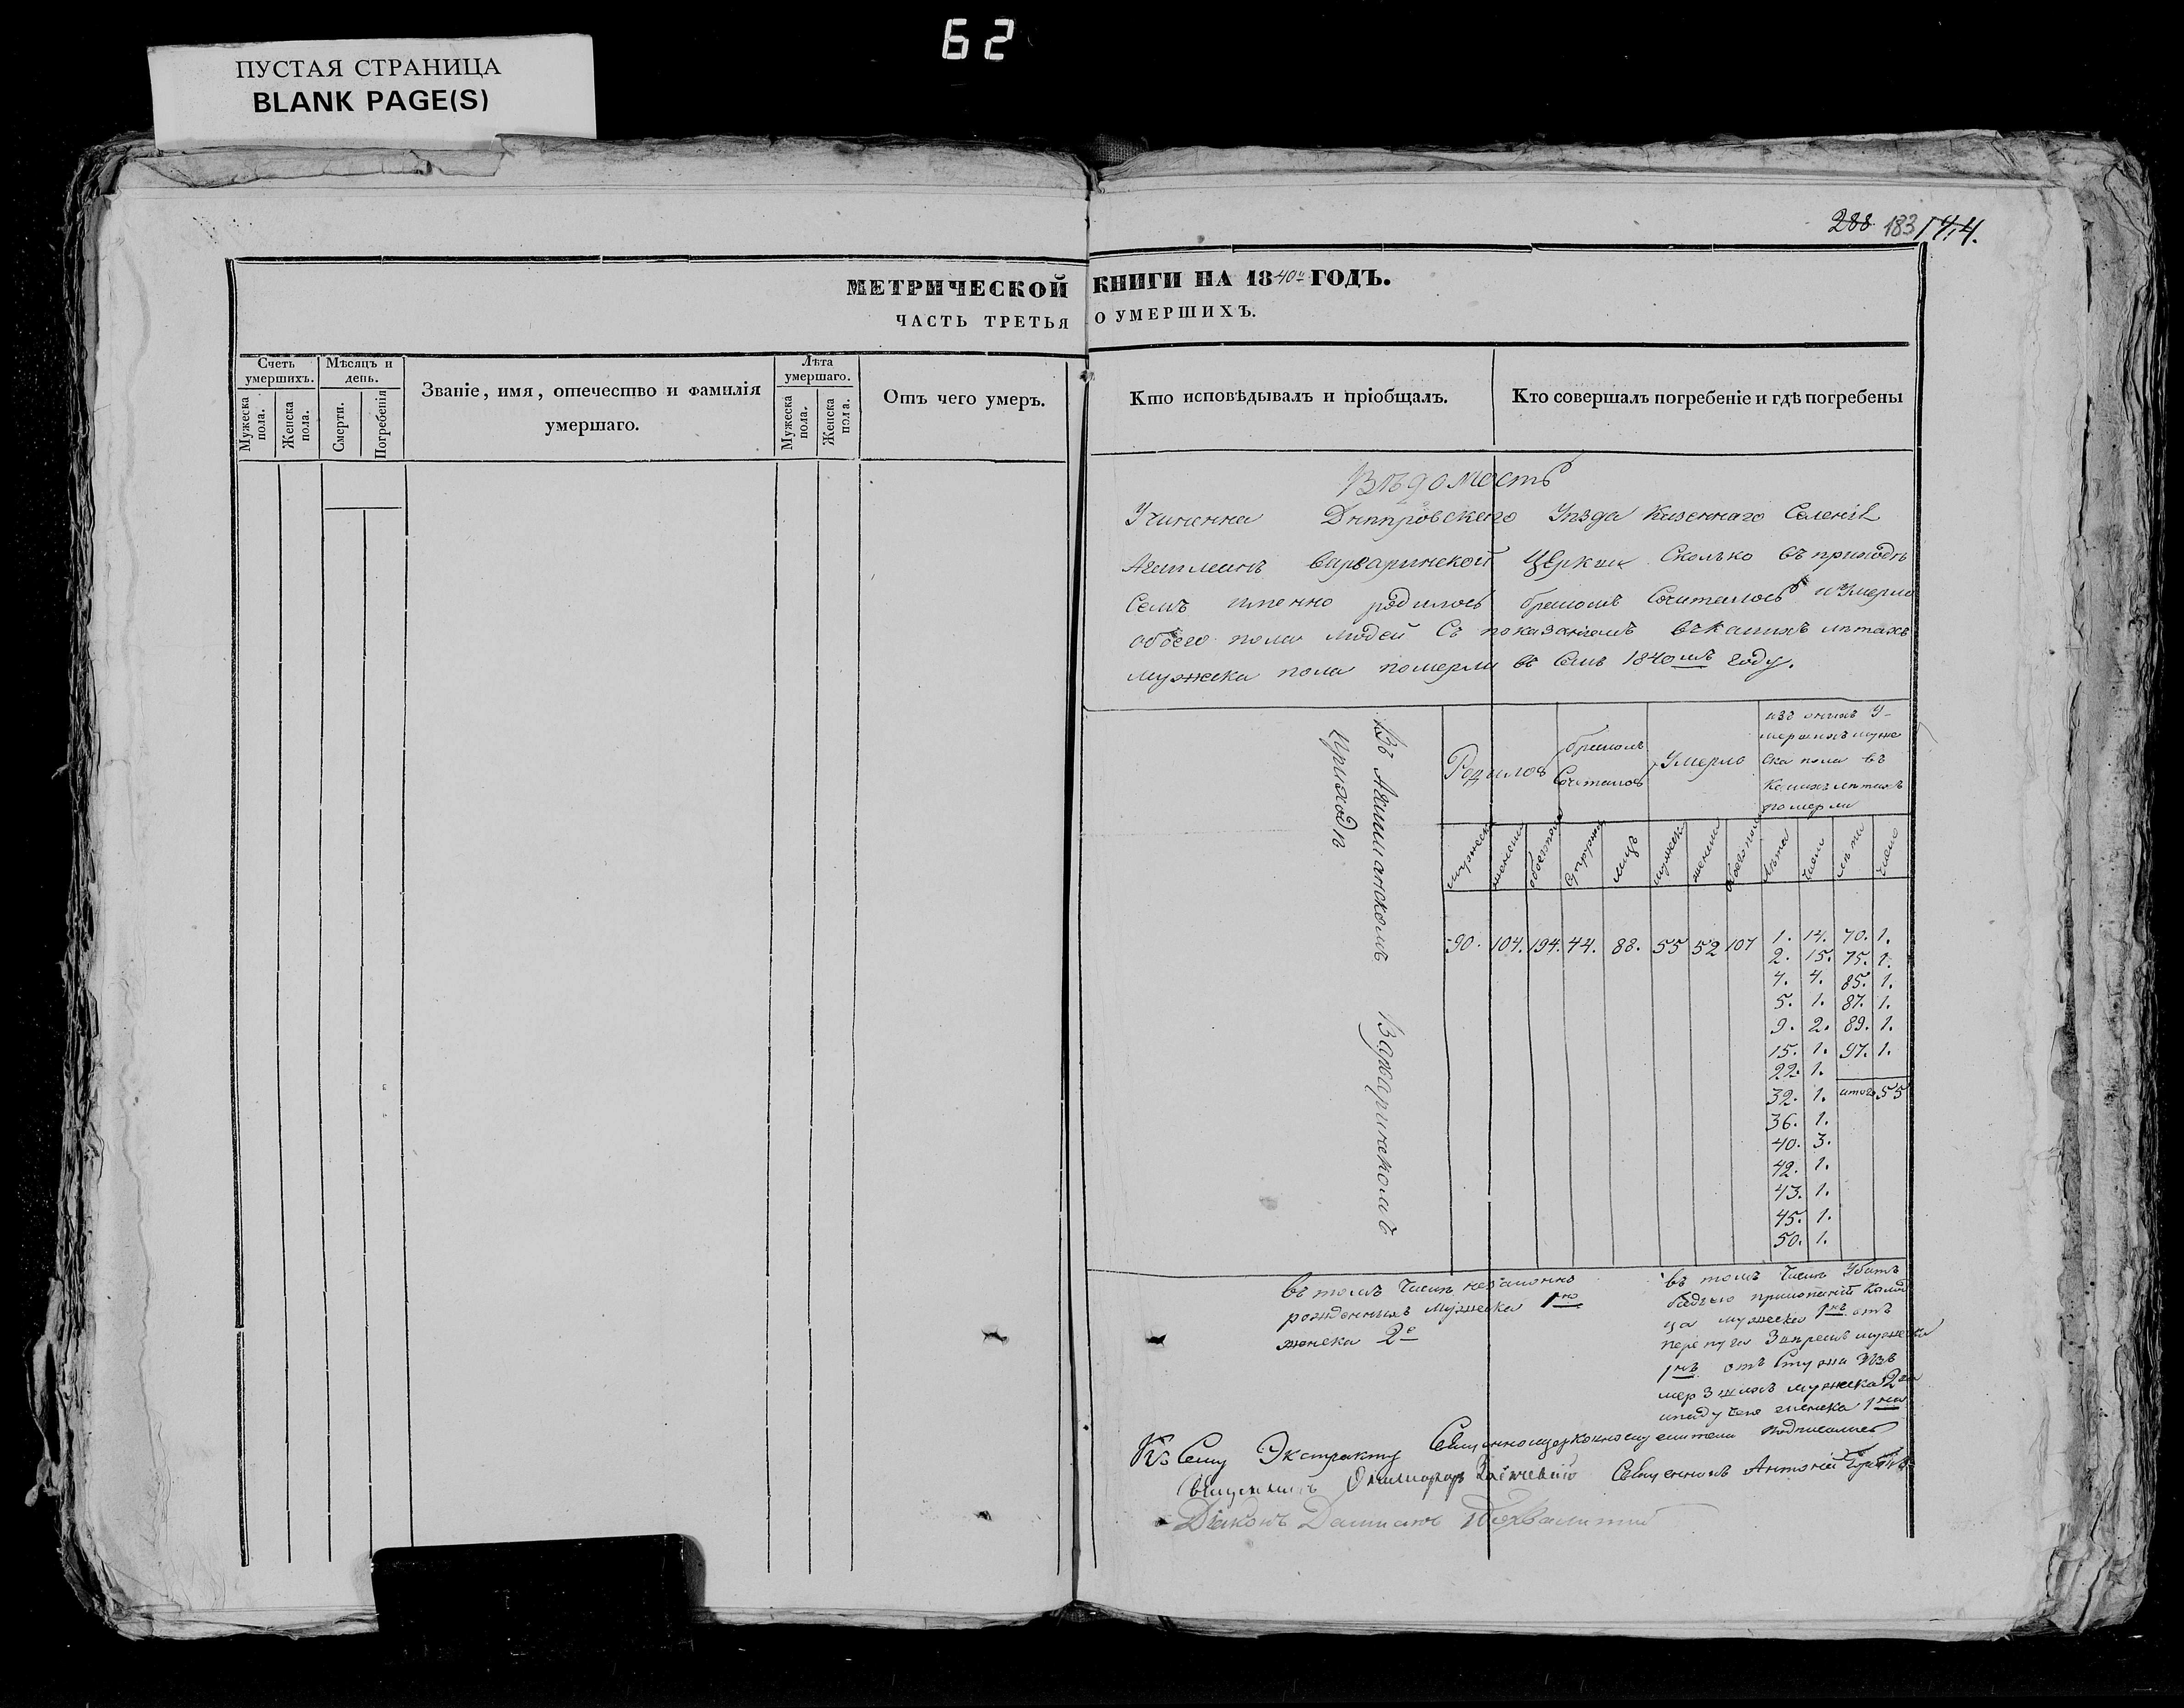 62
ПУСТАЯ СТРАНИЦА
BLANK PAGE(S)
288 183 174.
МЕТРИЧЕСКОЙ КНИГИ НА 1840й ГОДЪ.
ЧАСТЬ ТРЕТЬЯ О УМЕРШИХЪ.
Счетъ умершихъ.
Мужеска пола.
Женска пола.
Мѣсяцъ и день.
Смерти.
Погребенія
Званіе, имя, отечество и фамилія умершаго.
Лѣта умершаго.
Мужеска пола.
Женска пола.
Отъ чего умеръ.
Кто исповѣдывалъ и пріобщалъ.
Кто совершалъ погребеніе и гдѣ погребены
Вѣдомость
Учинена Днѣпровскаго Уѣзда Казеннаго Селенія
Варваринской Церкви Сколько въ приходѣ
Семъ именно родилось бракомъ Сочеталось и Умерло
обоего пола людей Съ показаніемъ въ какихъ лѣтахъ
мужеска пола померли въ семъ 1840мъ году.
Въ Агайманскомъ Варваринскомъ
Приходѣ
Родилось
бракомъ Сочеталось
Умерло
изъ оныхъ У-
мершихъ муже
ска пола въ
Коихъ лѣтахъ
померли
мужеска
женска
обоего пола
Супружн
лицъ
мужеск
женска
обоего пола
Лѣта
число
лѣта
число
90. 104. 194. 44. 88. 55 52 107 1. 14. 70. 1.
2. 15. 75. 1.
4. 4. 85. 1.
5. 1. 87. 1.
9. 2. 89. 1.
15. 1. 97. 1.
22. 1.
32. 1. итого 55
36. 1.
40. 3.
42. 1.
43. 1.
45. 1.
50. 1.
въ томъ Числѣ незаконно
рожденныхъ мужеска 1но
женска 2е
въ томъ Числѣ Убитъ
мужеска 1нъ отъ
мужеска
1нъ отъ
мужеска 2
женска 1на
Къ Сему Экстракту Священноцерковнослужители подписались
Священникъ Священникъ Антоній
Діаконъ Даміанъ